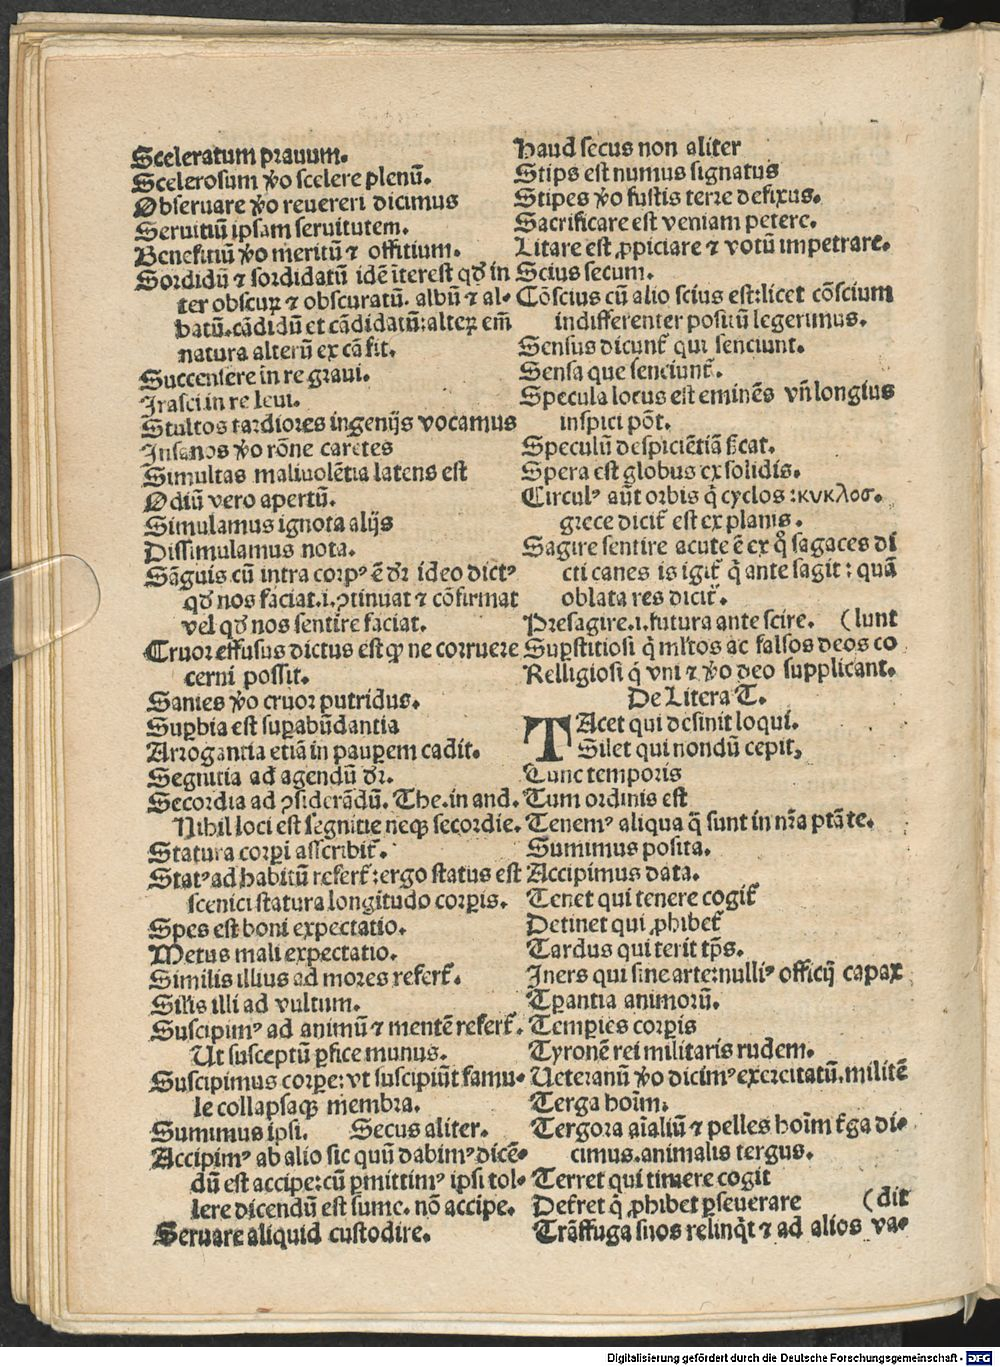 Sceleratum prauum.
Scelerosum ꝟo scelere plenū.
Obseruare ꝟo reuereri dicimus
Seruitiū ipsam seruitutem.
Benefitiū ꝟo meritū ⁊ offitium.
Sordidū ⁊ sordidatū idē īterest qđ in
ter obscuꝝ ⁊ obscuratū. albū ⁊ al-
batū. cādidū et cādidatū: alteꝝ em̄
natura alterū ex cā fit.
Succensere in re graui.
Irasci in re leui.
Stultos tardiores ingenijs vocamus
Insanos ꝟo rōne carētes
Simultas maliuolētia latens est
Odiū vero apertū.
Simulamus ignota alijs
Dissimulamus nota.
Sāguis cū intra corpꝰ ē dr̄ ideo dictꝰ
qđ nos faciat .i. ꝯtinuat ⁊ cōfirmat
vel qđ nos sentire faciat.
Cruor effusus dictus est ꝙ ne corruere
cerni possit.
Sanies ꝟo cruor putridus.
Suꝑbia est suꝑabūdantia
Arrogantia etiā in pauꝑem cadit.
Segnitia ad agendū dr̄.
Secordia ad ꝯsiderādū. The. in and.
Nihil loci est segnitie neqꝫ secordie.
Statura corꝑi asscribit᷑.
Statꝰ ad habitū refert᷑: ergo status est
scenici statura longitudo corꝑis.
Spes est boni expectatio.
Metus mali expectatio.
Similis illius ad mores refert᷑.
Sil̄is illi ad vultum.
Suscipimꝰ ad animū ⁊ mentē refert᷑.
Ut susceptū ꝑfice munus.
Suscipimus corpe: vt suscipiūt famu-
le collapsaqꝫ membra.
Sumimus ipsi. Secus aliter.
Accipimꝰ ab alio sic quū dabimꝰ dicē-
dū est accipe: cū ꝑmittimꝰ ipsi tol-
lere dicendū est sume. nō accipe.
Seruare aliquid custodire.
Haud secus non aliter
Stips est numus signatus
Stipes ꝟo fustis terre defixus.
Sacrificare est veniam petere.
Litare est ꝓpiciare ⁊ votū impetrare.
Scius secum.
Cōscius cū alio scius est: licet cōscium
indifferenter positū legerimus.
Sensus dicunt᷑ qui senciunt.
Sensa que senciunt᷑.
Specula locus est eminēs vn̄ longius
inspici pōt.
Speculū despiciētiā ẜcat.
Spera est globus ex solidis.
Circulꝰ aūt orbis q̄ cyclos: κυκλος.
grece dicit᷑ est ex planis.
Sagire sentire acute ē ex qͦ sagaces di
cti canes is igit᷑ q̄ ante sagit: quā
oblata res dicit᷑.
Presagire .i. futura ante scire. (lunt
Suꝑstitiosi q̄ ml̄tos ac falsos deos co
Relligiosi q̄ vni ⁊ ꝟo deo supplicant.
De Litera T.
TAcet qui desinit loqui.
Silet qui nondū cepit,
Tunc temporis
Tum ordinis est
Tenemꝰ aliqua q̄ sunt in nr̄a ptāte.
Sumimus posita.
Accipimus data.
Tenet qui tenere cogit᷑
Detinet qui ꝓhibet᷑
Tardus qui terit tp̄s.
Iners qui sine arte: nulliꝰ officij capax
Tꝑantia animorū.
Temꝑies corꝑis
Tyronē rei militaris rudem.
Ueteranū ꝟo dicimꝰ exercitatū. militē
Terga hoīm.
Tergora aīaliū ⁊ pelles hoīm t᷑ga di-
cimus. animalis tergus.
Terret qui timere cogit
Det᷑ret q̄ ꝓhibet ꝑseuerare (dit
Trāffuga suos relinq̇t ⁊ ad alios va-
Digitalisierung gefördert durch die Deutsche Forschungsgemeinschaft - DFG